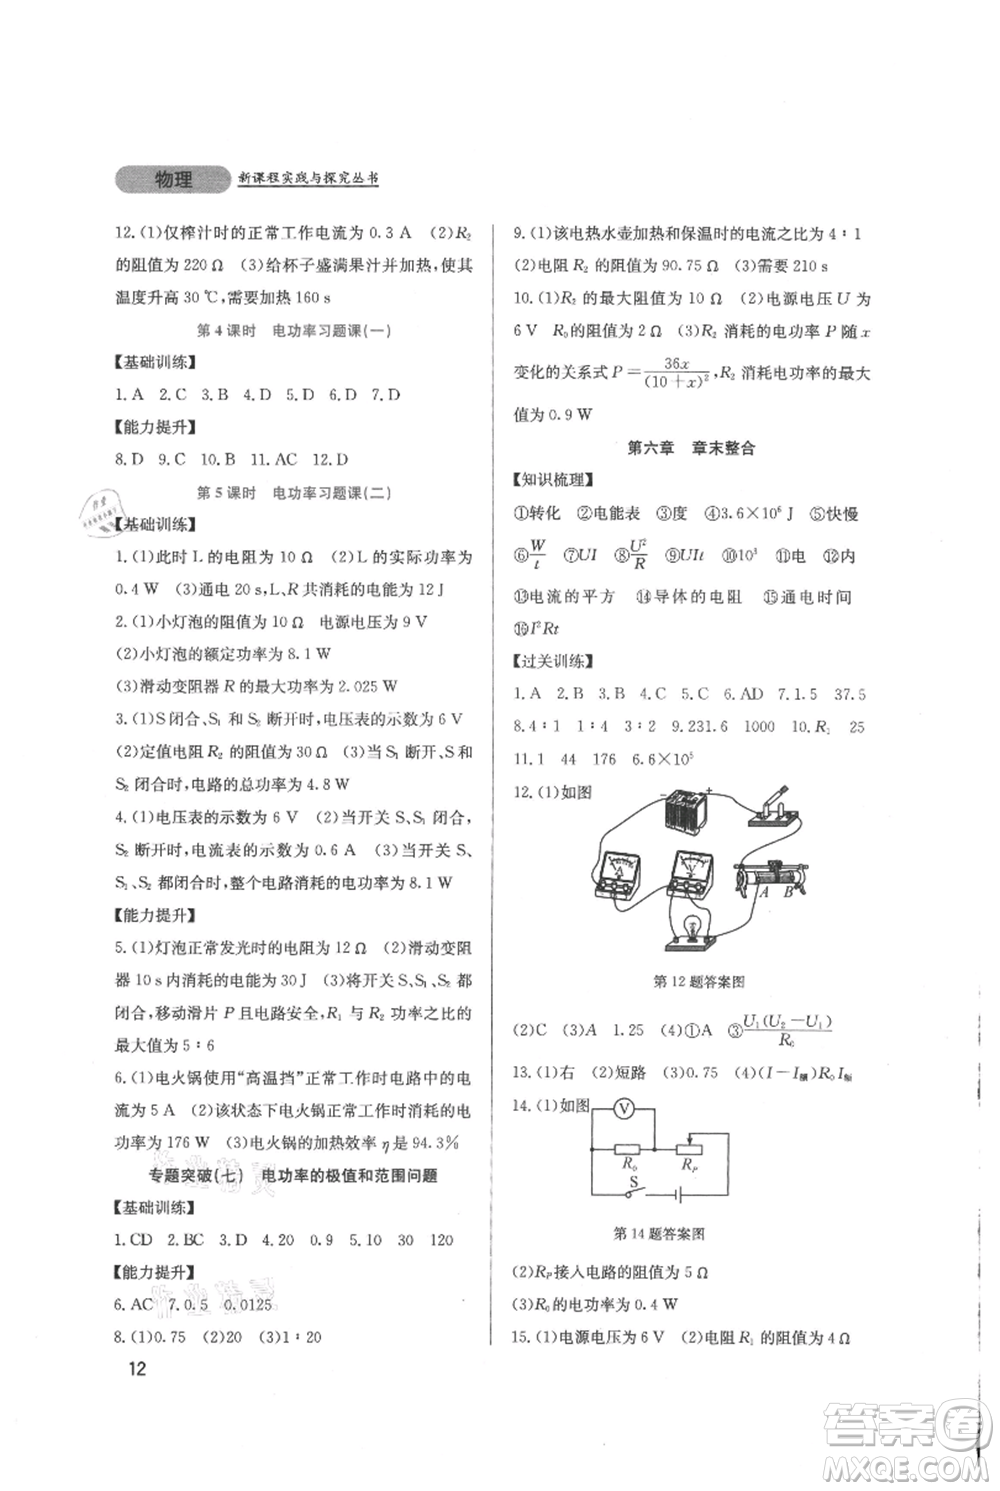 物理 新课程实践与探究丛书
12.(1)仅榨汁时的正常工作电流为 0.3 A (2)R₂
的阻值为 220 Ω (3)给杯子盛满果汁并加热,使其
温度升高 30 ℃,需要加热 160 s
第 4 课时 电功率习题课(一)
【基础训练】
1. A 2. C 3. B 4. D 5. D 6. D 7. D
【能力提升】
8. D 9. C 10. B 11. AC 12. D
第 5 课时 电功率习题课(二)
【基础训练】
1. (1)此时 L 的电阻为 10 Ω (2)L 的实际功率为
0.4 W (3)通电 20 s,L、R 共消耗的电能为 12 J
2. (1)小灯泡的阻值为 10 Ω 电源电压为 9 V
(2)小灯泡的额定功率为 8.1 W
(3)滑动变阻器 R 的最大功率为 2.025 W
3. (1)S 闭合、S₁ 和 S₂ 断开时,电压表的示数为 6 V
(2)定值电阻 R₂ 的阻值为 30 Ω (3)当 S₁ 断开、S、
S₂ 闭合时,电路的总功率为 4.8 W
4. (1)电压表的示数为 6 V (2)当开关 S、S₁ 闭合,
S₂ 断开时,电流表的示数为 0.6 A (3)当开关 S、
S₁、S₂ 闭合时,整个电路消耗的电功率为 8.1 W
【能力提升】
5. (1)灯泡正常发光时的电阻为 12 Ω (2)滑动变阻
器 10 s 内消耗的电能为 30 J (3)将开关 S、S₁、S₂ 都
闭合,移动滑片 P 且电路安全,R₁ 与 R₂ 功率之比的
最大值为 5∶6
6. (1)电火锅使用“高温挡”正常工作时电路中的电
流为 5 A (2)该状态下电火锅正常工作时消耗的电
功率为 176 W (3)电火锅的加热效率 η 是 94.3%
专题突破(七) 电功率的极值和范围问题
【基础训练】
1. CD 2. BC 3. D 4. 20 0.9 5. 10 30 120
【能力提升】
6. AC 7. 0.5 0.0125
8. (1)0.75 (2)20 (3)1∶20
12
9. (1)该电热水壶加热和保温时的电流之比为 4∶1
(2)电阻 R₂ 的阻值为 90.75 Ω (3)需要 210 s
10. (1)R₂ 的最大阻值为 10 Ω (2)电源电压 U 为
6 V R₀的阻值为 2 Ω (3)R₂ 消耗的电功率 P 随 x
变化的关系式 P=36x/(10+x)²,R₂ 消耗电功率的最大
值为 0.9 W
第六章 章末整合
【知识梳理】
①转化 ②电能表 ③度 ④3.6×10⁶ J ⑤快慢
⑥W/t ⑦UI ⑧U²/R ⑨UIt ⑩10³ ⑪电 ⑫内
⑬电流的平方 ⑭导体的电阻 ⑮通电时间
⑯I²Rt
【过关训练】
1. A 2. B 3. B 4. C 5. C 6. AD 7. 1.5 37.5
8. 4∶1 1∶4 3∶2 9. 231.6 1000 10. R₂ 25
11. 1 44 176 6.6×10⁵
12. (1)如图
− + A V A B
第 12 题答案图
(2)C (3)A 1.25 (4)①A ③U₁(U₂−U₁)/R₀
13. (1)右 (2)短路 (3)0.75 (4)(I−I额)R₀I额
14. (1)如图
V
R₀ R_P
S
第 14 题答案图
(2)R_P接入电路的阻值为 5 Ω
(3)R₀的电功率为 0.4 W
15. (1)电源电压为 6 V (2)电阻 R₁ 的阻值为 4 Ω
答案卷
MXQE.COM